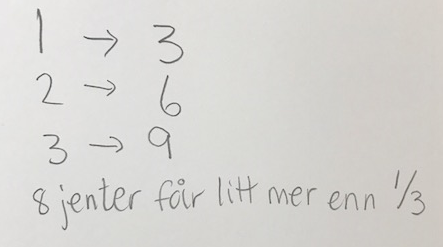 1 → 3
2 → 6
3 → 9
8 jenter får litt mer enn 1/3